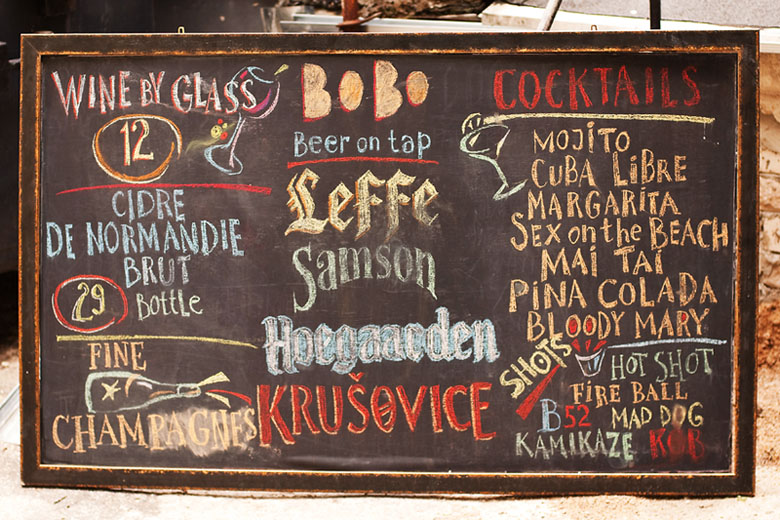 WINE BY GLASS
12
CIDRE
DE NORMANDIE
BRUT
29 Bottle
FINE
CHAMPAGNES
BOBO
Beer on tap
Leffe
Samson
Hoegaarden
KRUŠOVICE
COCKTAILS
MOJITO
CUBA LIBRE
MARGARITA
SEX on the BEACH
MAI TAI
PINA COLADA
BLOODY MARY
SHOTS
HOT SHOT
FIRE BALL
B52 MAD DOG
KAMIKAZE KGB